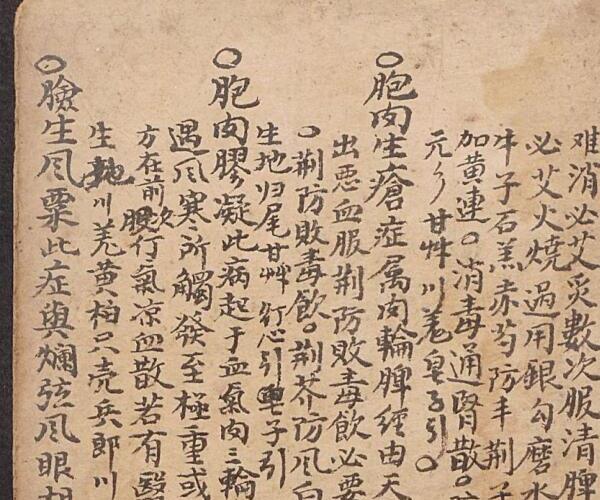 难消必艾炙數次服清脾
必艾火燒過用銀勾磨水
牛子石羔赤芍防丰荆子
加黄連○消毒通腎散○
元彡甘艸川羌皂子引○
○胞肉生瘡症属肉輪脾經由天
出惡血服荆防敗毒飲必要
○荆防敗毒飲○荆芥防风白
生地归尾甘艸灯心引子引
○胞肉膠凝此病起于血氣肉三輪
遇风寒所觸發至極重或
方在前次後行氣凉血散若有醫
生地川羌黄柏只壳兵郎川
○臉生风粟此症與爛弦风眼